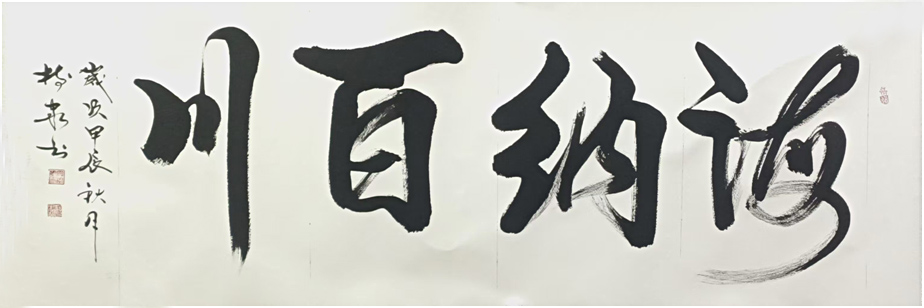 海纳百川
岁次甲辰秋月
书